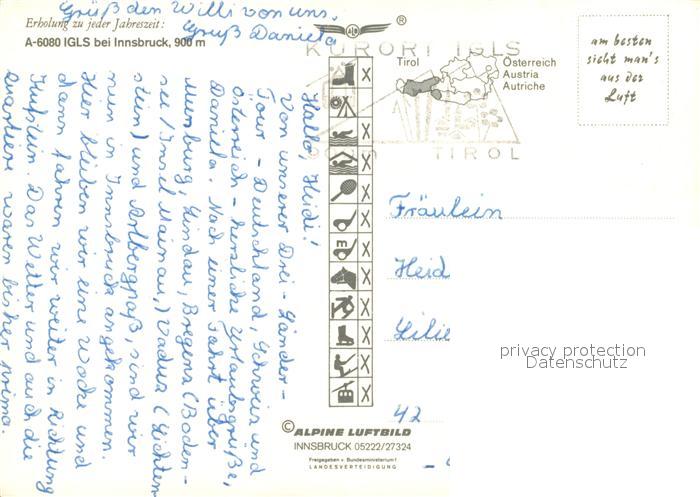 Grüß den Willi von uns.
Gruß Daniela
Erholung zu jeder Jahreszeit:
A-6080 IGLS bei Innsbruck, 900 m
Hallo, Heidi!
Von unserer Drei-Länder-
Tour - Deutschland, Schweiz und
Österreich - herzliche Urlaubsgrüße,
Daniela. Nach einer Fahrt über
Meersburg, Lindau, Bregenz (Boden-
see/Insel Mainau,) Vaduz (Lichten-
stein) und Arlbergpaß, sind wir
nun in Innsbruck angekommen.
Hier bleiben wir eine Woche und
dann fahren wir weiter in Richtung
Kufstein. Das Wetter und auch die
Quartiere waren bisher prima.
®
KURORT IGLS
TIROL
Tirol
Österreich
Austria
Autriche
am besten
sieht man's
aus der
Luft
Fräulein
Heid
Lilie
42
privacy protection
Datenschutz
© ALPINE LUFTBILD
INNSBRUCK 05222/27324
Freigegeben v. Bundesministerium f.
LANDESVERTEIDIGUNG